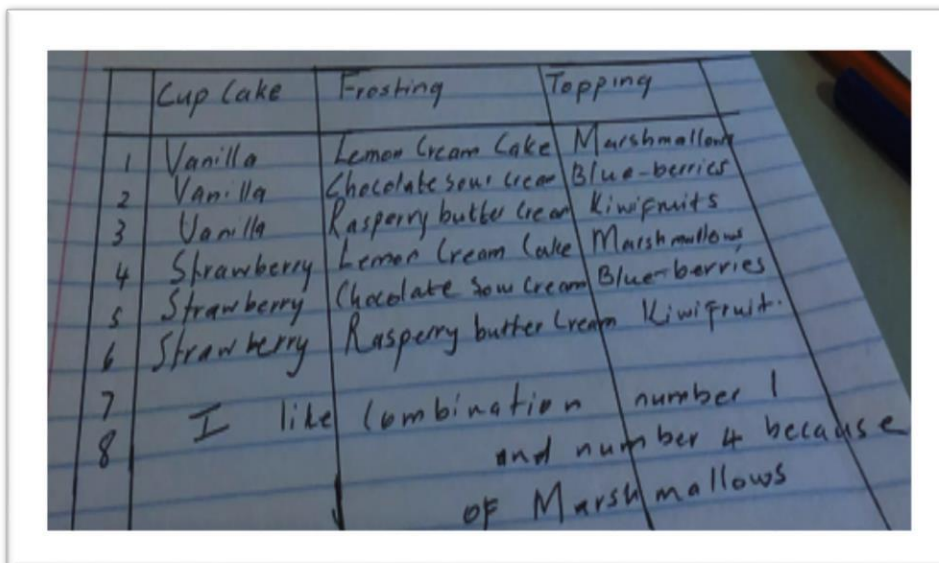 Cup Cake Frosting Topping
1 Vanilla Lemon Cream Cake Marshmallows
2 Vanilla Chocolate sour Cream Blue-berries
3 Vanilla Rasperry butter Cream Kiwifruits
4 Strawberry Lemon Cream Cake Marshmallows
5 Strawberry Chocolate Sour Cream Blue-berries
6 Strawberry Rasperry butter Cream Kiwifruit.
7 I like Combination number 1
8 and number 4 because
of Marshmallows